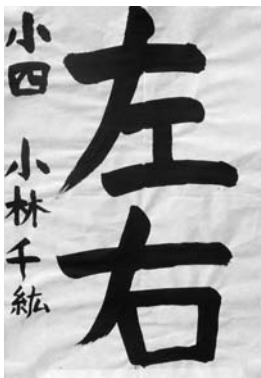 左右
小四 小林千紘